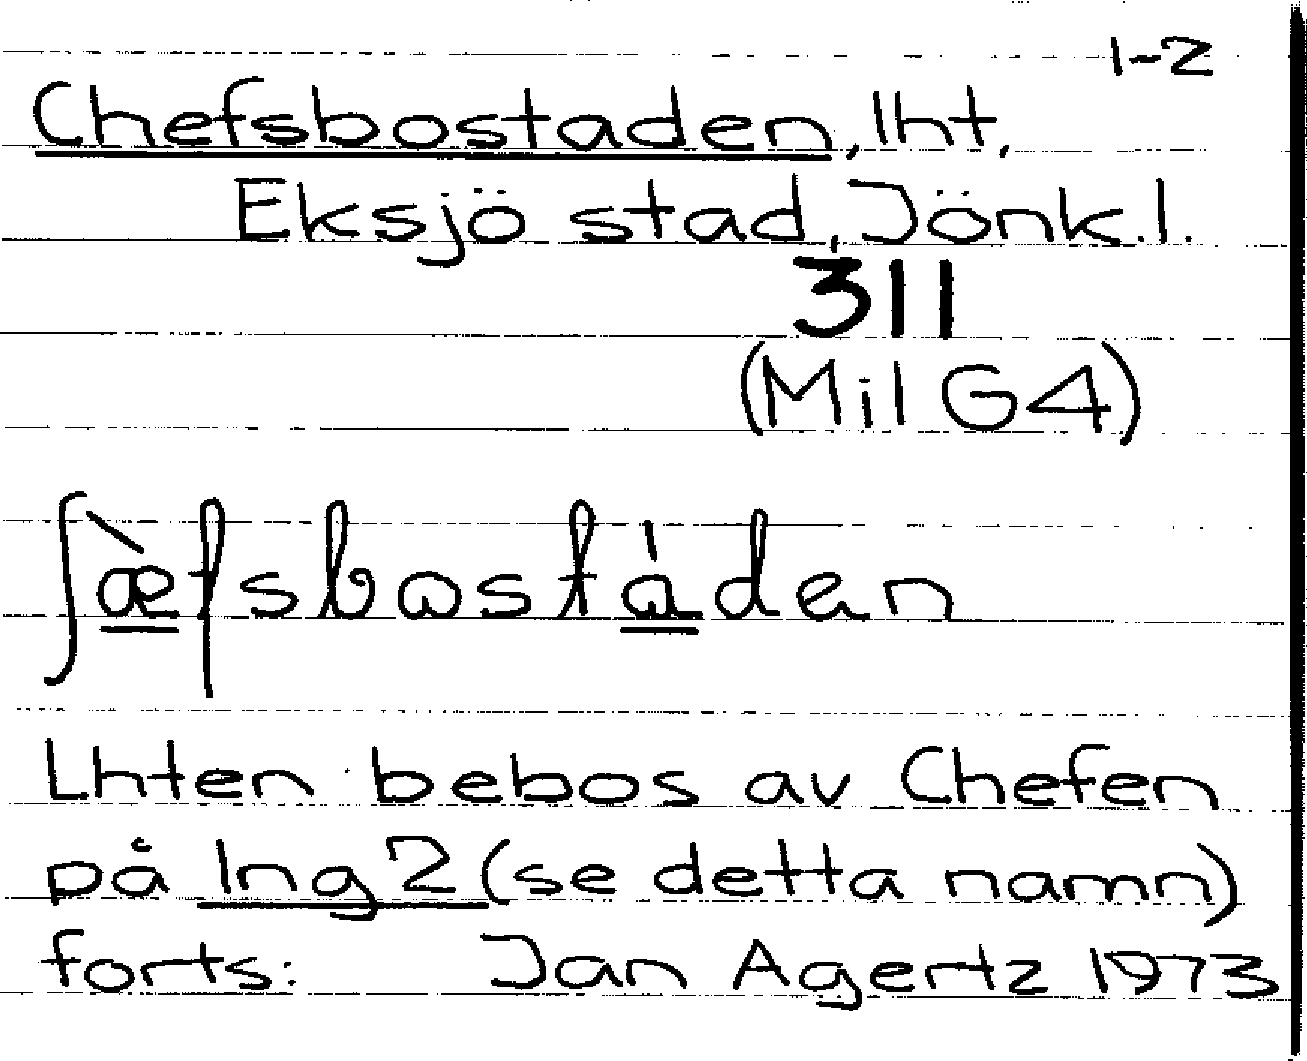 1-2
Chefsbostaden, lht,
Eksjö stad, Jönk.l.
311
(Mil G4)
ʃæ̀fsbostáden
Lhten bebos av Chefen
på Ing 2 (se detta namn)
forts: Jan Agertz 1973